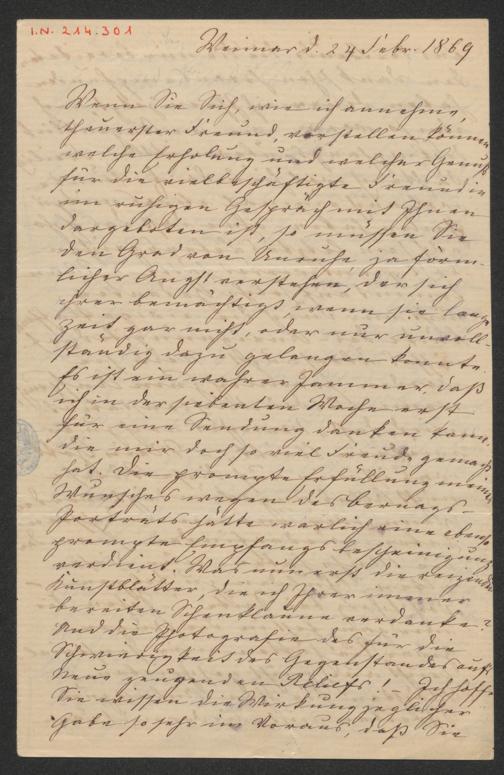 I.N. 214.301
Weimar d. 24 Febr. 1869
Wenn Sie Sich, wie ich annehme,
theuerster Freund, vorstellen können
welche Erholung und welcher Genuß
für die vielbeschäftigte Freundin
im ruhigen Gespräch mit Ihnen
dargeboten ist, so müssen Sie
den Grad von Unruhe ja förm-
licher Angst verstehen, der sich
ihrer bemächtigt, wenn sie lange
Zeit gar nicht, oder nur unvoll-
ständig dazu gelangen konnte.
Es ist ein wahrer Jammer, daß
ich in der siebenten Woche erst
für eine Sendung danken kann,
die mir doch so viel Freude gemacht
hat. Die prompte Erfüllung meines
Wunsches wegen des
Porträts hätte warlich eine ebenso
prompte Empfangsbescheinigung
verdient. Was nun erst die reizenden
Kunstblätter, die ich Ihrer immer
bereiten Schenklaune verdanke?
Und die Photografie des für die
Schwierigkeit des Gegenstandes aufs
Neue zeugenden Reliefs! – Ich hoffe
Sie wissen die Wirkung jeglicher
Gabe so sehr im Voraus, daß Sie